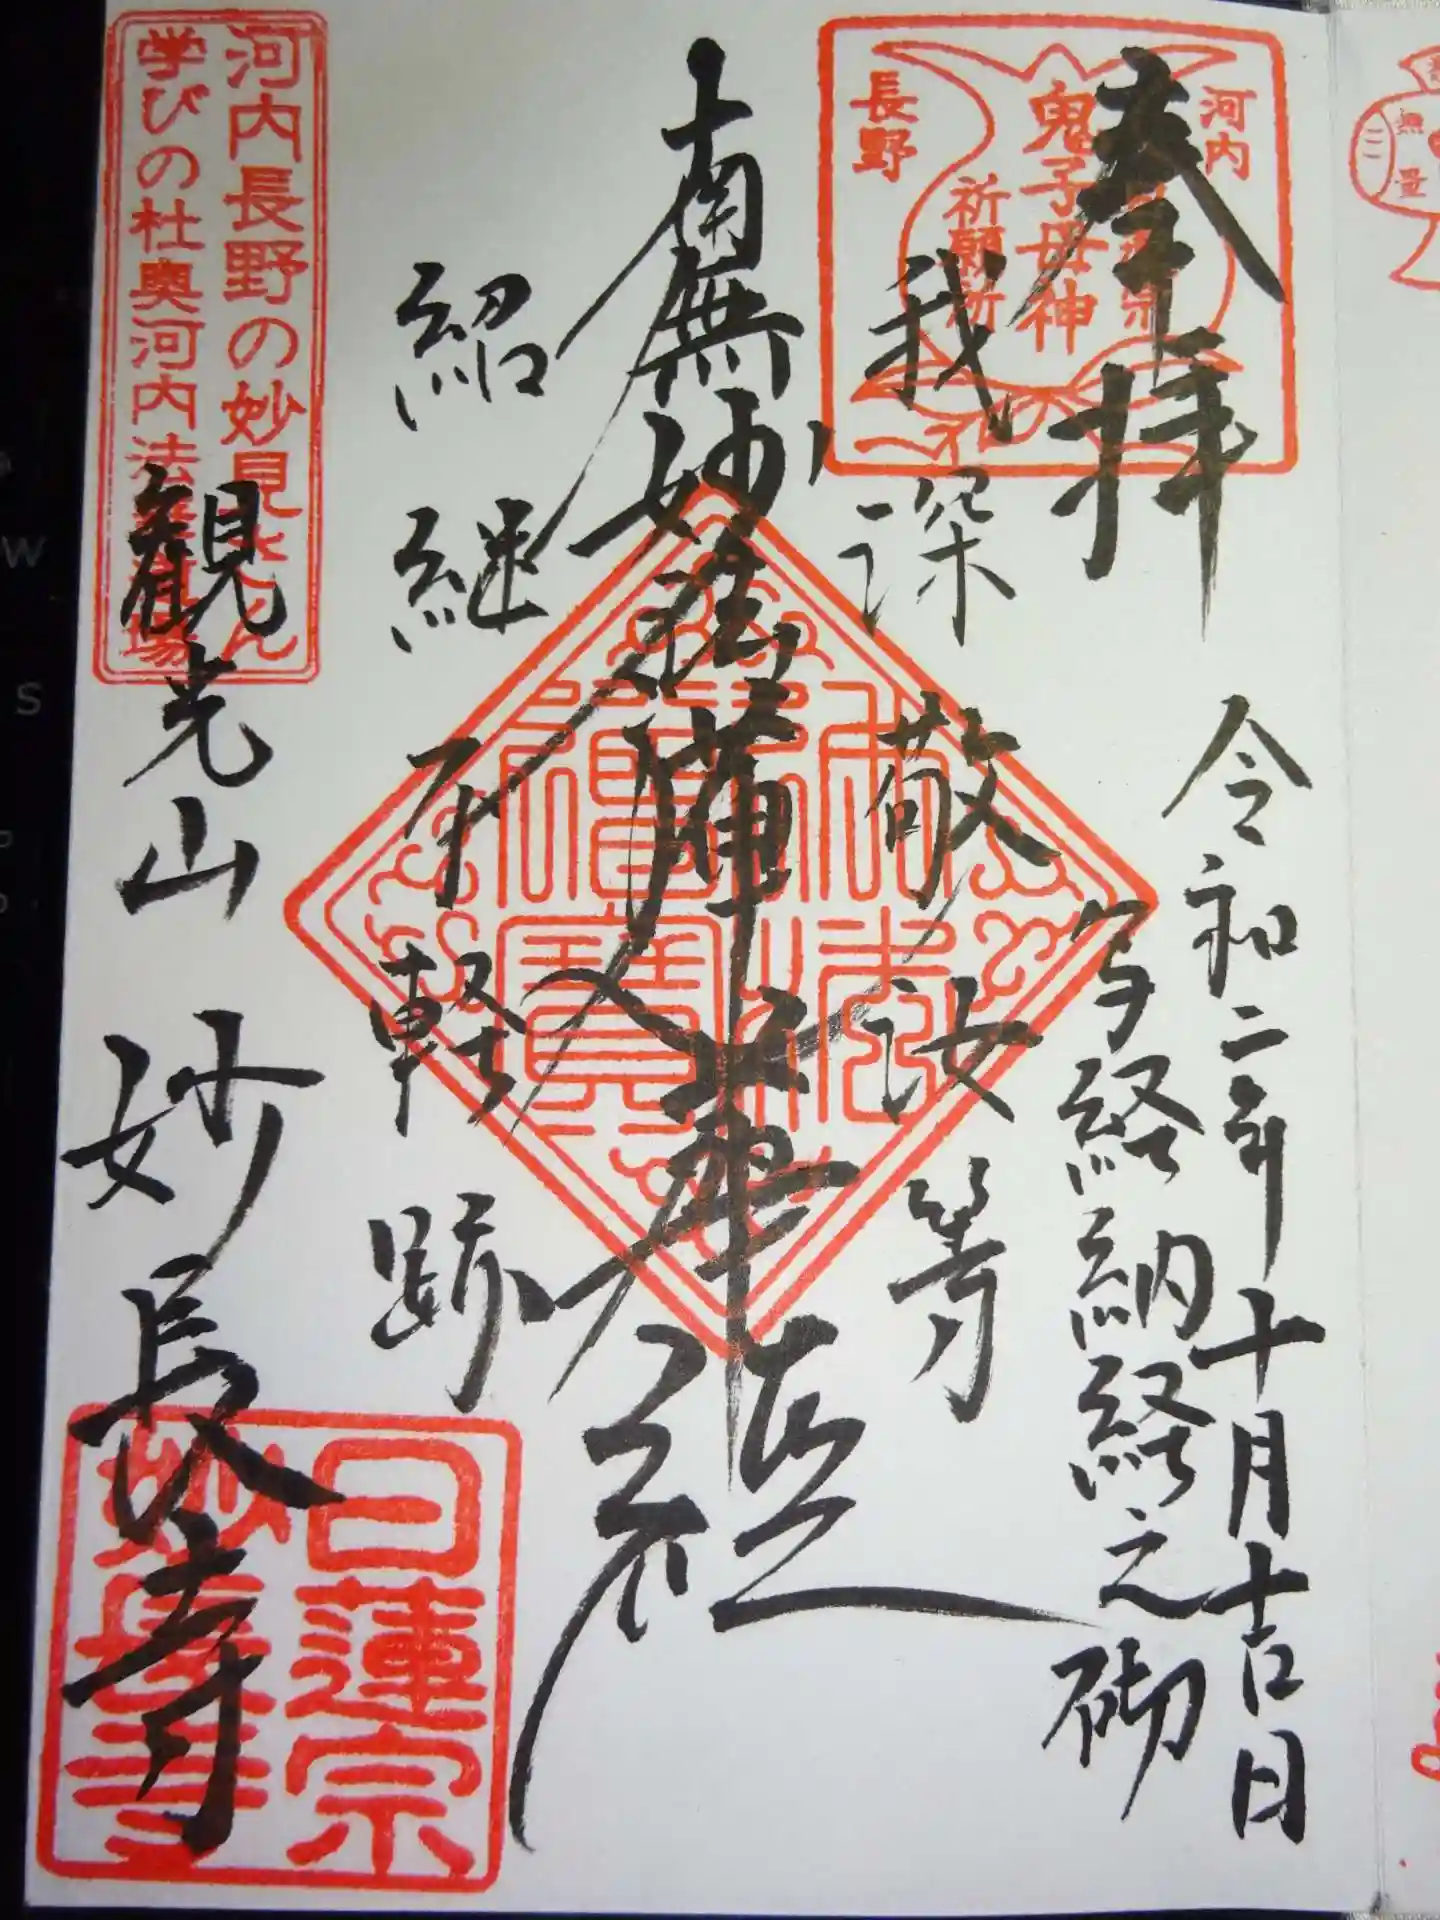 奉拝
令和二年十月吉日
写経納経之砌
河内
長野
鬼子母神
祈願所
我深敬汝等
南無妙法蓮華経
紹継不軽跡
仏法
僧宝
河内長野の妙見さん
学びの杜奥河内法華道場
観光山妙長寺
日蓮宗
妙長寺
無量